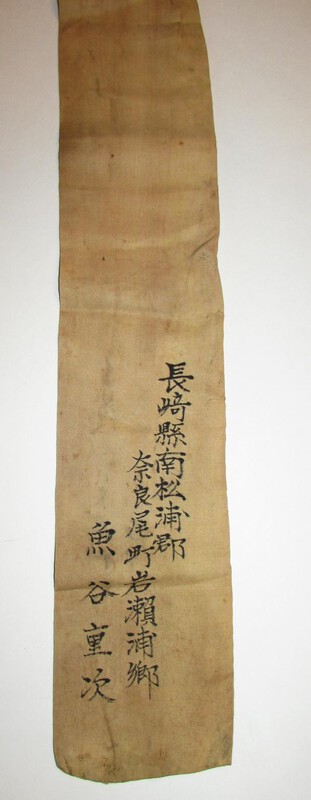 長﨑縣南松浦郡
奈良尾町岩瀬浦郷
魚谷重次